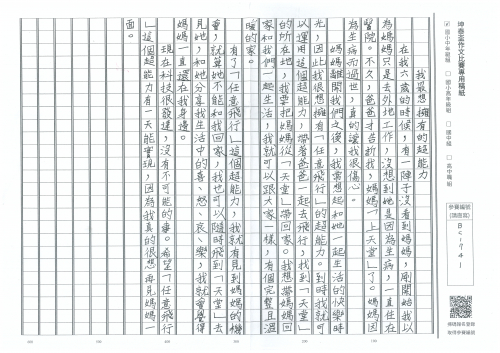 坤泰盃作文比賽專用稿紙
☑國小中年級組 □國小高年級組 □國中組 □高中職組
參賽編號
(請填寫)
BC-741
我最想擁有的超能力
在我六歲的時候,有一陣子沒看到媽媽,剛開始我以
為媽媽只是去外地工作,沒想到她是因為生病,一直住在
醫院。不久,爸爸才告訴我,媽媽「上天堂」了。媽媽因
為生病而過世,真的讓我很傷心。
媽媽離開我們之後,我常想起和她一起生活的快樂時
光,因此我很想擁有「任意飛行」的超能力。到時我就可
以運用這個超能力,帶著爸爸一起去飛行,找到「天堂」
的所在地,我要把媽媽從「天堂」帶回家。我想帶媽媽回
家和我們一起生活,我就可以跟大家一樣,有個完整且溫
暖的家。
有了「任意飛行」這個超能力,我就有見到媽媽的機
會,就算她不能和我回家,我也可以隨時飛到「天堂」去
見她,和她分享我生活中的喜、怒、哀、樂,我就會覺得
媽媽一直還在我身邊。
現在科技很發達,沒有不可能的事。希望「任意飛行
」這個超能力有一天能實現,因為我真的很想再見媽媽一
面。
100
200
300
400
500
600